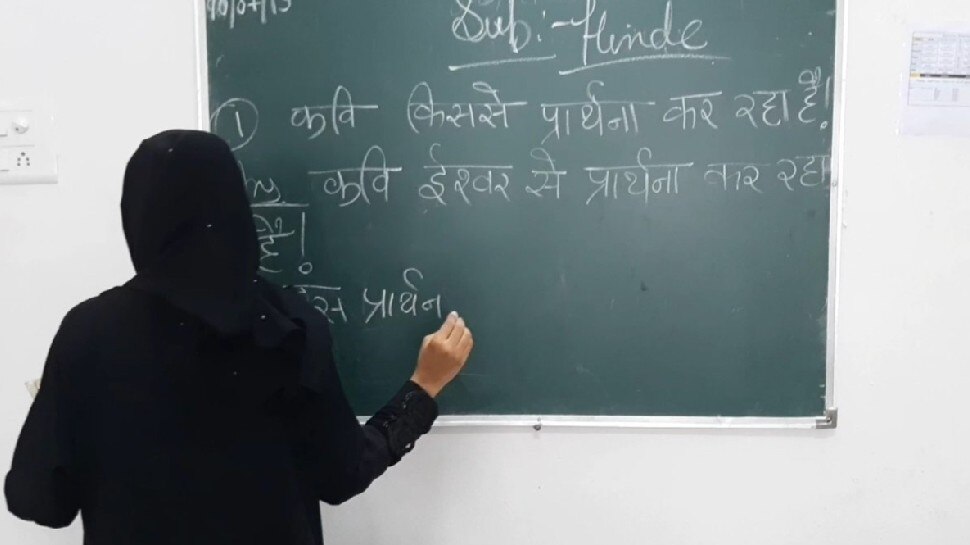 Sub:- Hinde
① कवि किससे प्रार्थना कर रहा है!
कवि ईश्वर से प्रार्थना कर रहा
है!
इस प्रार्थन